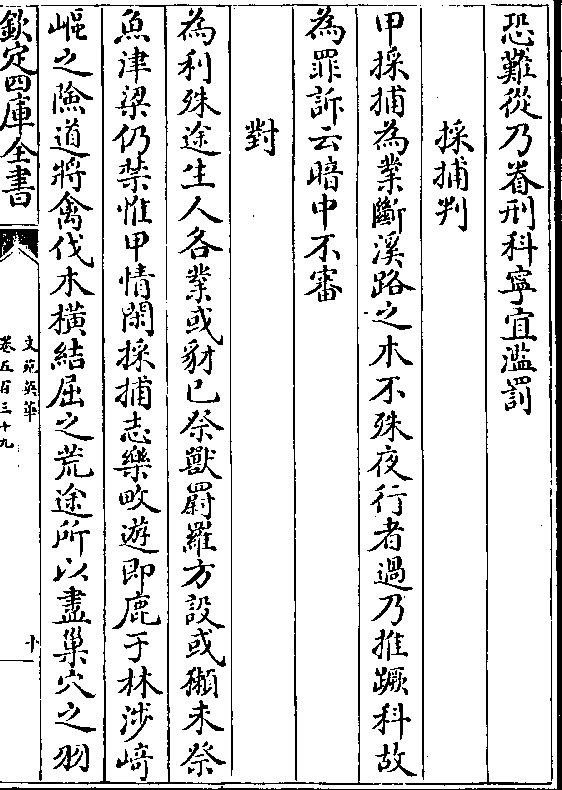 恐難從乃眷刑科寧宜濫罰
採捕判
甲採捕為業斷溪路之木不殊夜行者過乃推蹶科故
為罪訴云暗中不審
對
為利殊途生人各業或豺已祭獸罻羅方設或獺未祭
魚津梁仍禁惟甲情閑採捕志樂畋遊即鹿于林涉崎
嶇之險道將禽伐木橫結屈之荒途所以盡巢穴之羽
欽定四庫全書
文苑英華
卷五百三十九
十